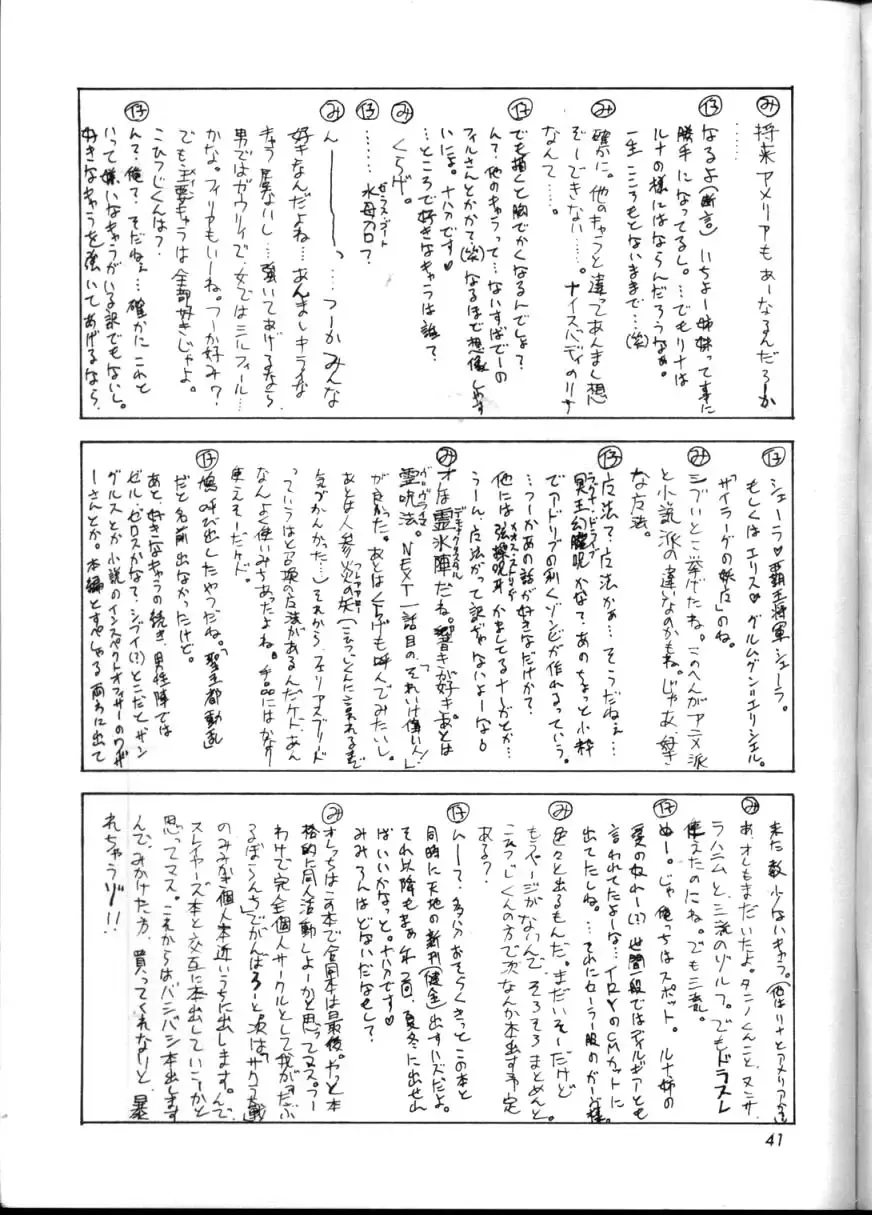 み 将来アメリアもあーなるんだろーか
……
仔 なるよ(断言)いちよー姉妹って事に
勝手になってるし。…でもリナは
ルナの様にはならんだろうなぁ。
一生こころもとないままで…(笑)
み 確かに。他のキャラと違ってあんまし想
ぞーできない……。ナイスバディのリナ
なんて……。
仔 でも描くと胸でかくなるんでしょ?
ん?他のキャラって…ないすばでーの
フィルさんとかかて?(笑)なるほど想像しやす
いによ。ナハハです♡
…ところで好きなキャラは誰?
み くらげ。
仔 ……水母フロ?
み ん————っ…つーかみんな
好きなんだよね…あんましキライな
きゃら居ないし…強いてあげるなら
男ではガウリイで、女ではミルフィール…
かな。フィリアもいーね。つーか好み?
でも主要キャラは全部好きじゃよ。
こひつじくんは?
仔 ん?俺?そだねぇ…確かにこれと
いって嫌いなキャラがいる訳でもないし。
好きなキャラを強いてあげるなら、
仔 シェーラ♡覇王将軍シェーラ。
もしくはエリス♡グルムグン=エリシェル。
「サイラーグの妖兵」のね。
み シブいとこ挙げたね。このへんがアニメ派
と小説派の違いなのかもね。じゃあ、好き
な方法。
仔 方法?方法かぁ…そうだねぇ…
冥王幻朧呪かなて?あのちょっと小粋
でアドリブの利くゾンビが作れるっていう。
…つーかあの話が好きなだけか?
他には
うーん、方法がって訳じゃないよーな。
み オは霊氷陣だね。響きが好き。あとは
霊呪法。NEXT一話目の「それいけ偉い人!」
が良かった。あとはくらげも呼んでみたいし。
あとは人参炎の矢(こひつじくんに言われるまで
気づかんかった…)それから、フェリアスブリード
っていうらはと召喚の方法があるんだケド、あん
なんよく使いみちあったよね。手品にはなり
使えそーだケド。
仔 鳩呼び出したやつだね。「聖王都動乱」
だと名前出なかったけど。
あと、好きなキャラの続き、男性陣では
ゼル・ゼロスかなて?シブイ(?)とこだとザン
グルスとか小説のインスペクトオフィサーのワイザ
ーさんとか。本編とすぺしゃる両方に出て
来た数少ないキャラ。(他はリナとアメリア
み あ、オレもまだいたよ。タニノくんこと、ヌンサ、
ラハニムと、三流のゾルフ。でもドラスレ
使えたのにね。でも三流。
仔 ぬー。じゃ俺っちはスポット。ルナ姉の
愛の奴れー(?)世間一般ではディルギアとも
言われてたよーな…イロイロのCMカットに
出てたしね。…それにセーラー服の
み 色々と出るもんだ。まだいそーだけど
もうページがないんで、そろそろまとめんと。
こひつじくんの方で次なんか本出す予定
ある?
仔 んーて、多分おそらくきっとこの本と
同時に天地の新刊(健全)出すハズだよ。
それ以降もまぁ年2回、夏冬に出せれ
ばいいかなっと。ナハハです♡
みみろんはどないだなもして?
み オレっちはこの本で合同本は最後。やっと本
格的に同人活動しよーかと思ってマス。つー
わけで完全個人サークルとして我が「だぶ
るぼーらんち」でがんばろーと。次は「サクラ大戦」
のみみなが個人本近いうちに出します。んで、
スレイヤーズ本と交互に本出していこうかと
思ってマス。これからはバシバシ本出します
んで、みかけた方、買ってくれないと、暴
れちゃうゾ!!
41